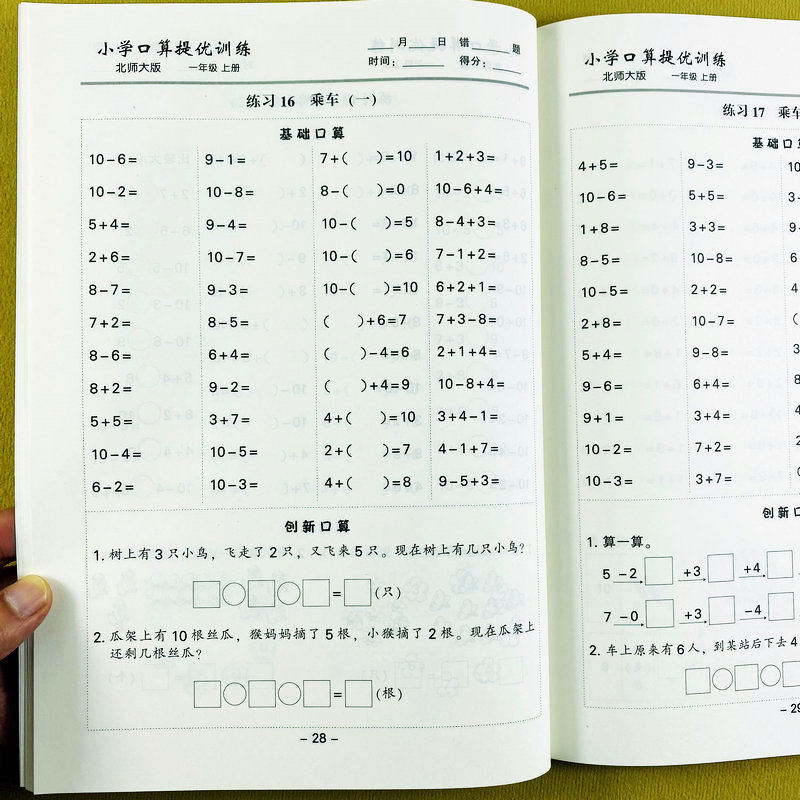 小学口算提优训练
北师大版 一年级 上册
月 日 错 题
时间： 得分：
练习16 乘车（一）
基础口算
10－6= 9－1= 7+( )=10 1+2+3=
10－2= 10－8= 8－( )=0 10－6+4=
5+4= 9－4= 10－( )=5 8－4+3=
2+6= 10－7= 10－( )=6 7－1+2=
8－7= 9－3= 10－( )=10 6+2+1=
7+2= 8－5= ( )+6=7 7+3－8=
8－6= 6+4= ( )－4=6 2+1+4=
8+2= 9－2= ( )+4=9 10－8+4=
5+5= 3+7= 4+( )=10 3+4－1=
10－4= 10－5= 2+( )=7 4－1+7=
6－2= 10－3= 4+( )=8 9－5+3=
创新口算
1. 树上有3只小鸟，飞走了2只，又飞来5只。现在树上有几只小鸟？
=(只)
2. 瓜架上有10根丝瓜，猴妈妈摘了5根，小猴摘了2根。现在瓜架上
还剩几根丝瓜？
=(根)
－28－
小学口算提优训练
北师大版 一年级 上册
练习17 乘车
基础口
4+5= 9－3= 10
10－6= 5+5= 3－
1+8= 3+3= 9－
8－5= 10－8= 6
10－5= 2+2= 4
2+8= 10－7= (
5+4= 9－8= 3
9－6= 6+4= 8
9+1= 3+4= 4
10－2= 7+2=
10－3= 3+7= (
创新口
1. 算一算。
5 －2 +3 +4
7 －0 +3 －4
2. 车上原来有6人，到某站后下去4
－29